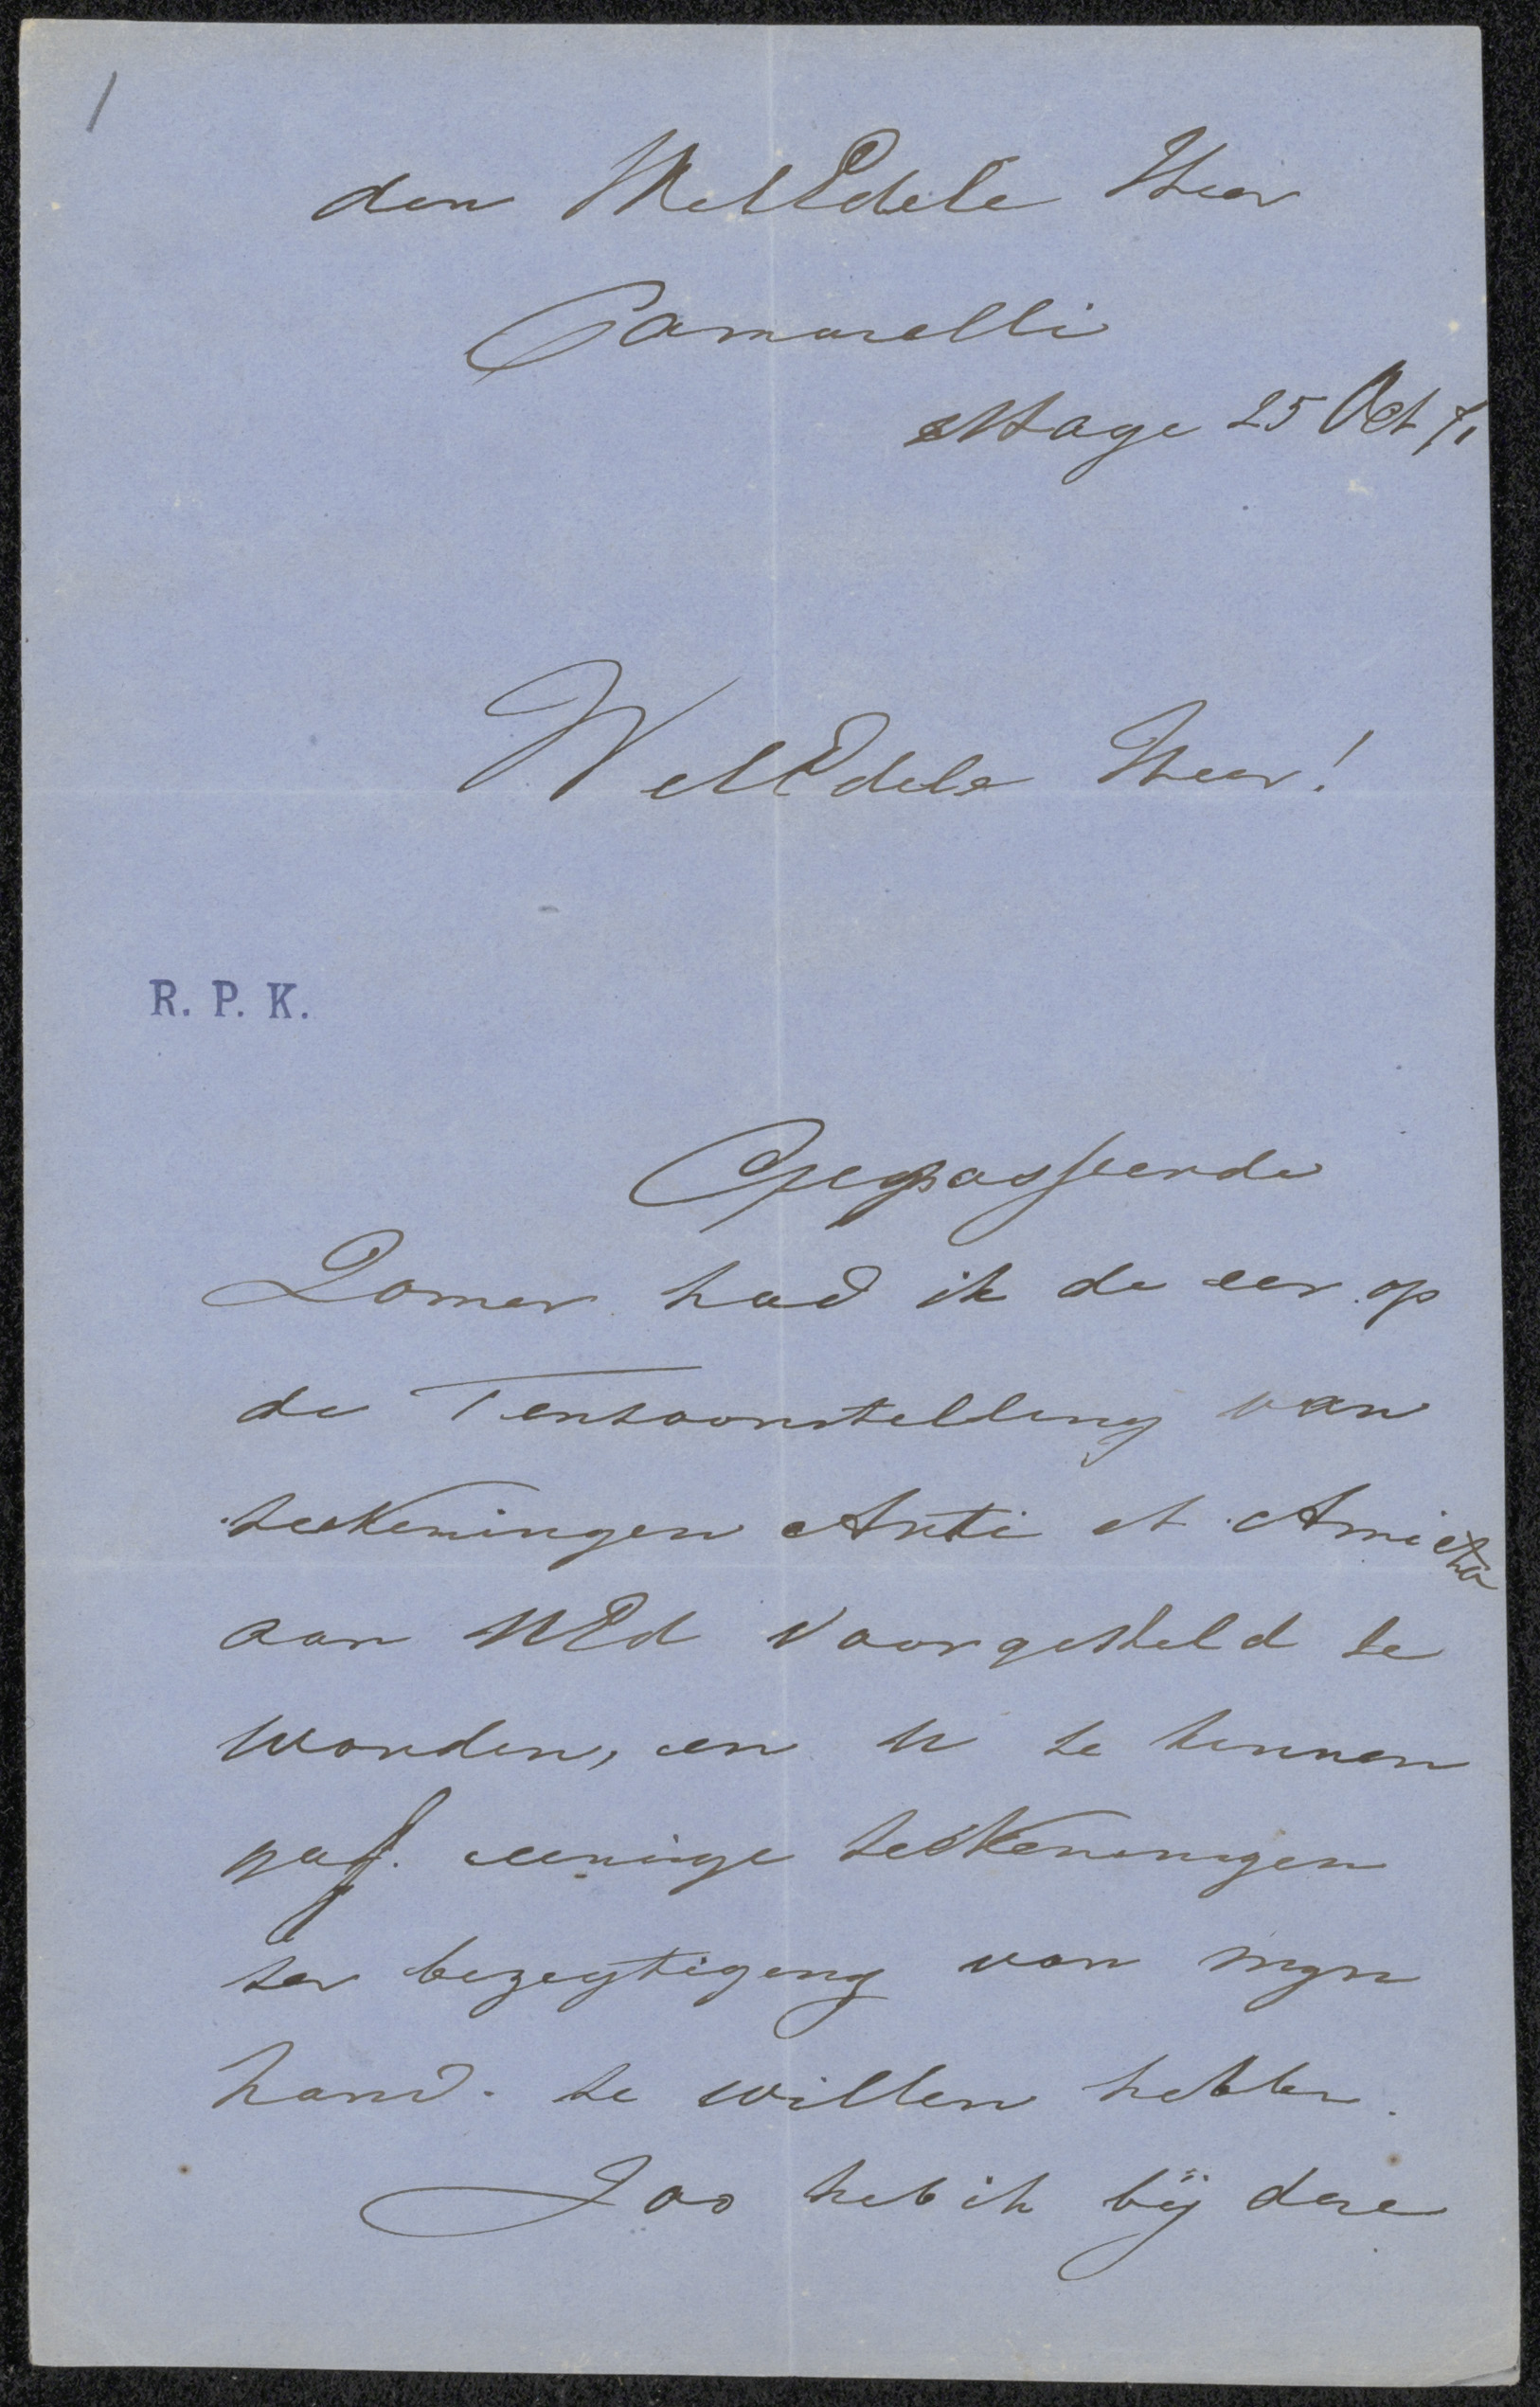 1
den WelEdele Heer
Camarelli
sHage 25 Oct 71
WelEdele Heer!
R. P. K.
Gepasseerde
Zomer had ik de eer op
de Tentoonstelling van
teekeningen Arti et Amicitia
aan UEd voorgesteld te
worden, en U te kennen
gaf. eenige teekeningen
ter bezegtiging van mijn
hand. te willen hebben.
Zoo heb ik bij deze